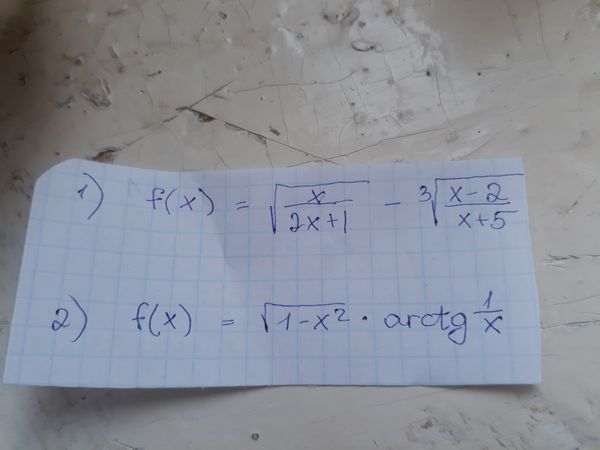 1) f(x) = √(x/(2x+1)) - ∛((x-2)/(x+5))
2) f(x) = √(1-x²) · arctg 1/x